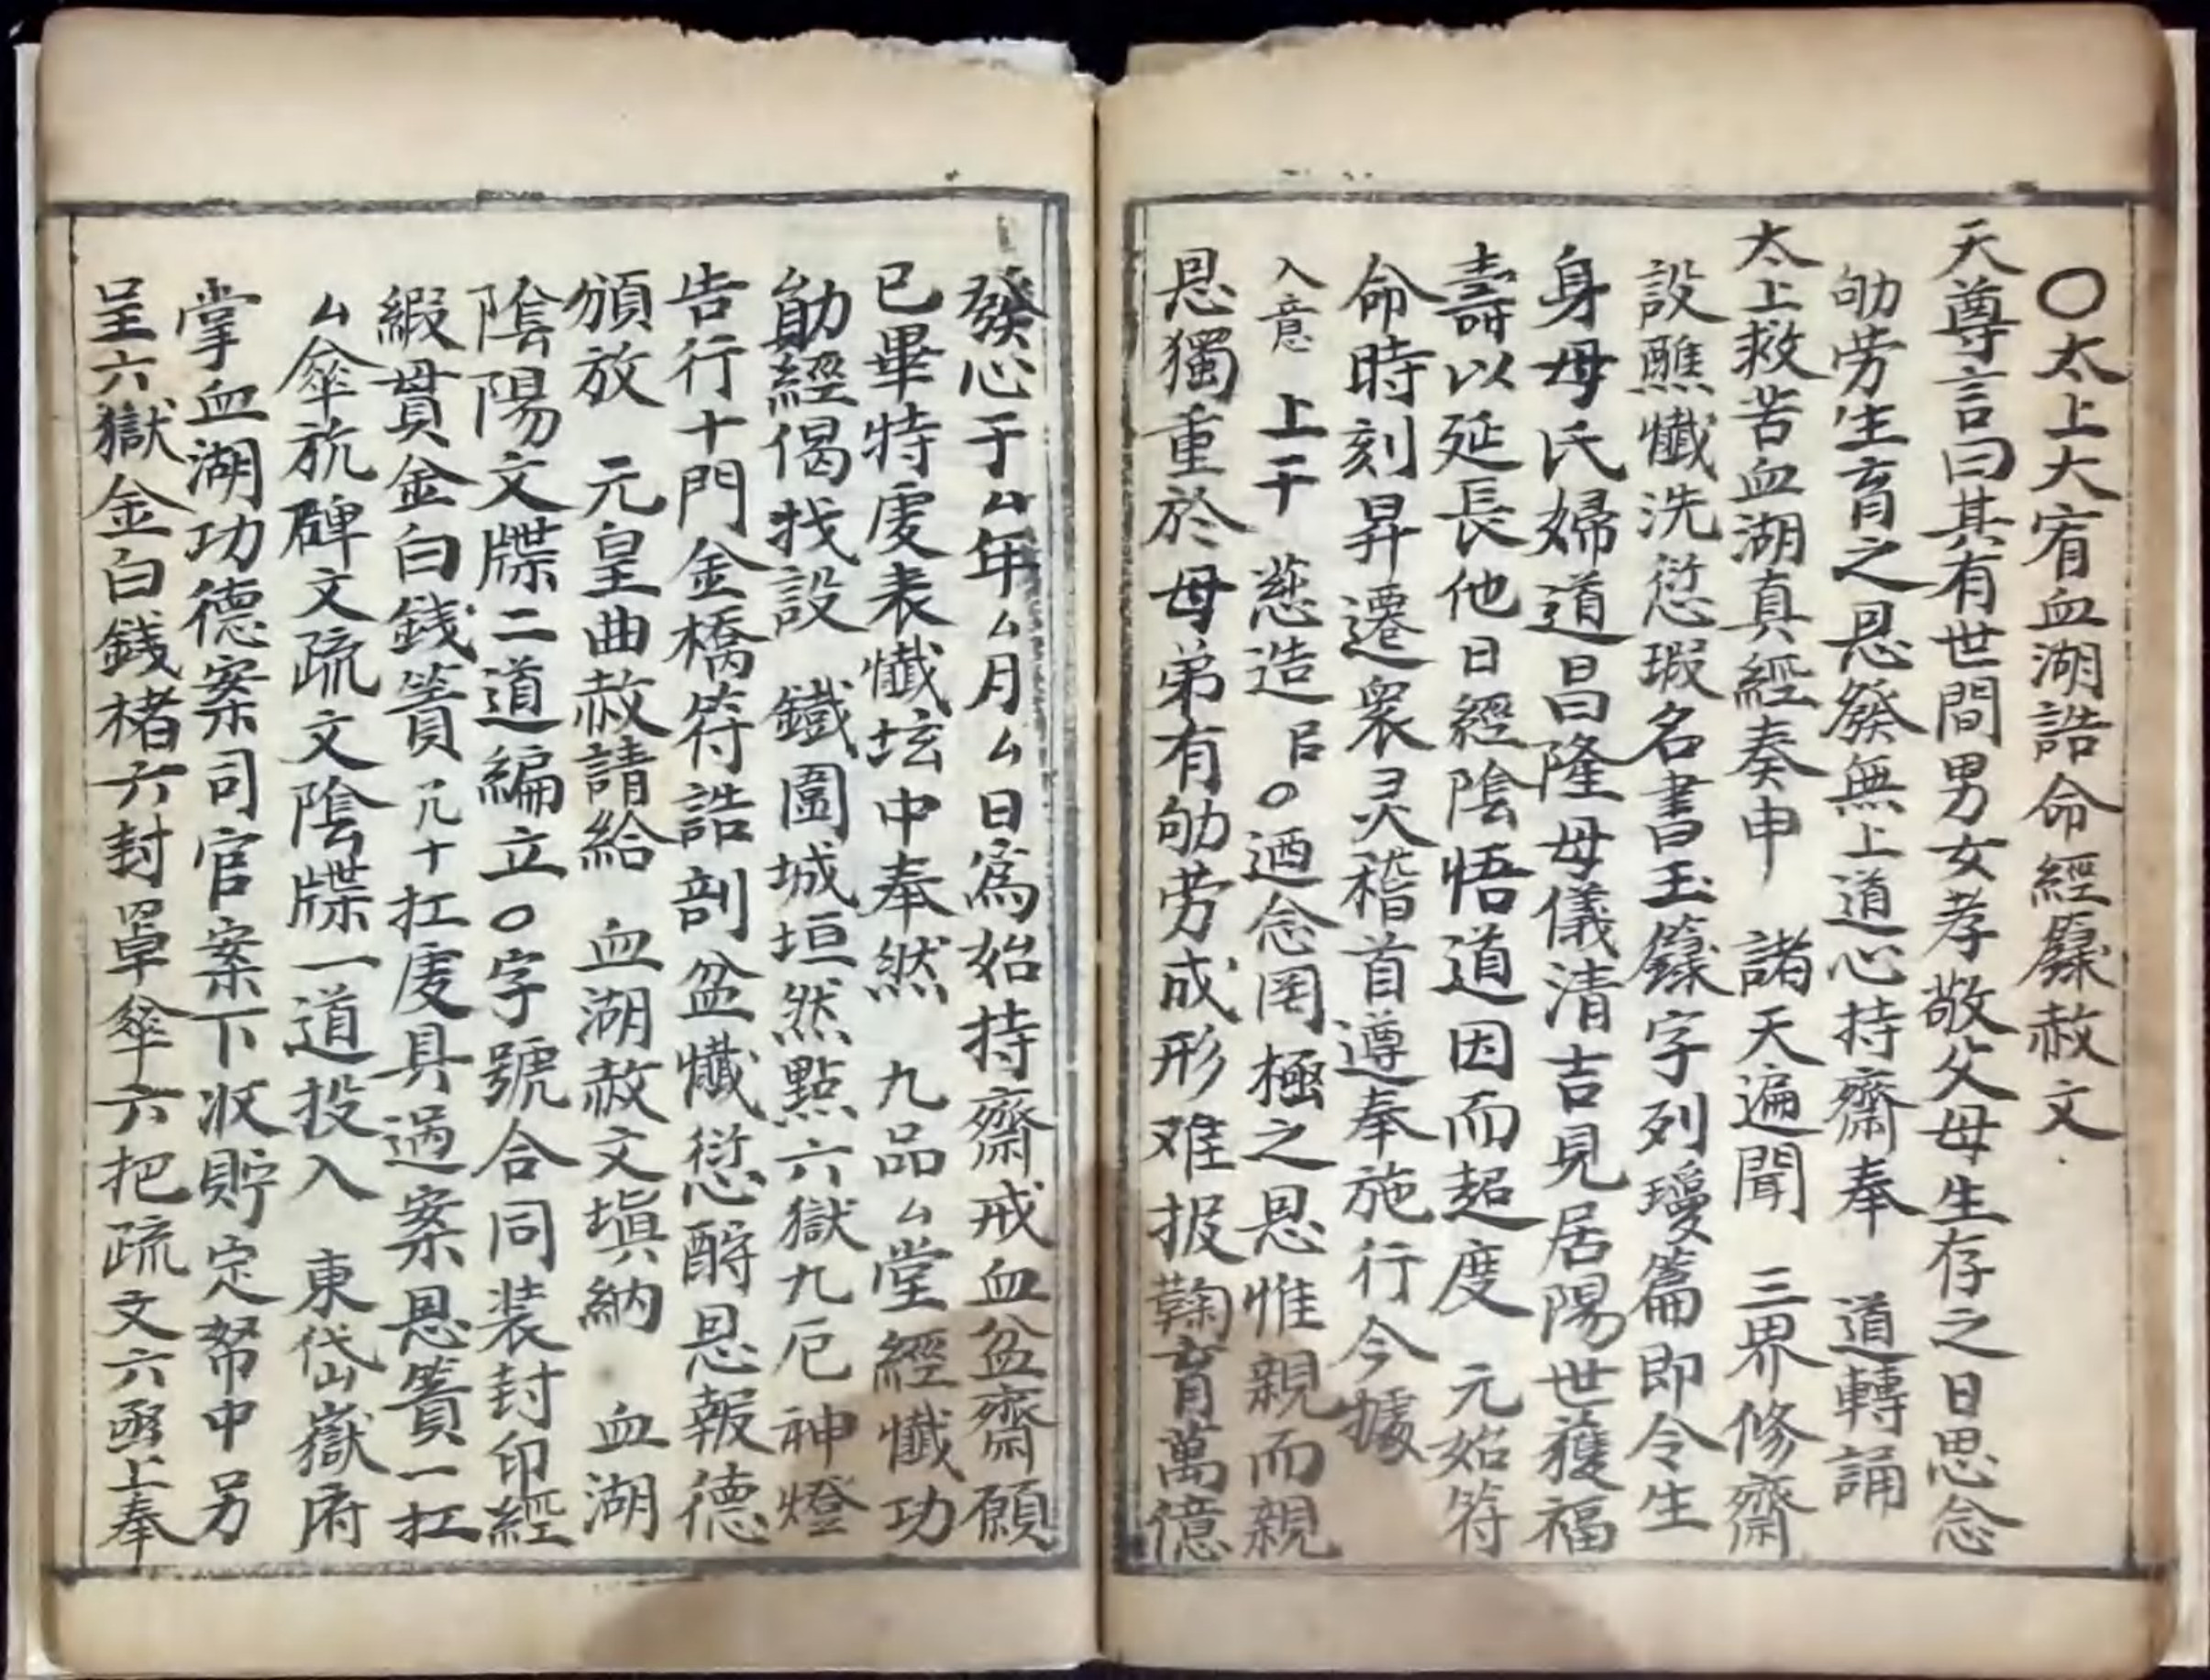 ○太上大宥血湖誥命經籙赦文
天尊言曰其有世間男女孝敬父母生存之日思念
劬劳生育之恩發無上道心持齋奉　道轉誦
太上救苦血湖真經奏申　諸天遍聞　三界修齋
設醮懺洗愆瑕名書玉籙字列瓊篇即令生
身母氏婦道昌隆母儀清吉見居陽世獲福
壽以延長他日經陰悟道因而超度　元始符
命時刻昇遷衆灵稽首遵奉施行今據
入意　上干　慈造　㠯○迺念罔極之恩惟親而親
恩獨重於母弟有劬劳成形难报鞠育萬億
發心于厶年厶月厶日為始持齋戒血盆齋願
已畢特虔表懺坛中奉然　九品厶堂經懺功
勛經偈找設　鐵圍城垣然點六獄九厄神燈
告行十門金橋符誥剖盆懺愆酧恩報德
頒放　元皇曲赦請給　血湖赦文塡納　血湖
陰陽文牒二道編立○字號合同装封印經
緞貫金白錢簣几十扛虔具過案恩簣一扛
厶傘旂碑文疏文陰牒一道投入　東岱嶽府
掌血湖功德案司官案下收貯定帑中另
呈六獄金白錢楮六封罩傘六把疏文六函上奉